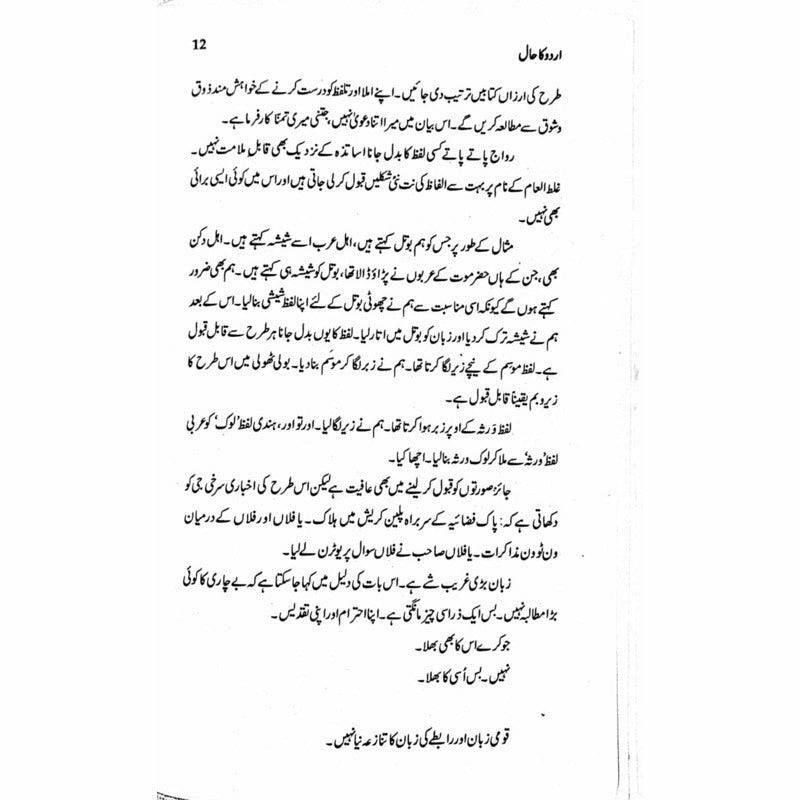 اردو کا حال 12
طرح کی ارزاں کتابیں ترتیب دی جائیں۔ اپنے املا اور تلفظ کو درست کرنے کے خواہش مند ذوق
و شوق سے مطالعہ کریں گے۔ اس بیان میں میرا اتنا دعویٰ نہیں، جتنی میری تمنّا کارفرما ہے۔
رواج پاتے پاتے کسی لفظ کا بدل جانا اساتذہ کے نزدیک بھی قابلِ ملامت نہیں۔
غلط العام کے نام پر بہت سے الفاظ کی نت نئی شکلیں قبول کر لی جاتی ہیں اور اس میں کوئی ایسی برائی
بھی نہیں۔
مثال کے طور پر جس کو ہم بوتل کہتے ہیں، اہل عرب اسے شیشہ کہتے ہیں۔ اہل دکن
بھی، جن کے ہاں حضر موت کے عربوں نے پڑاؤ ڈالا تھا، بوتل کو شیشہ ہی کہتے ہیں۔ ہم بھی ضرور
کہتے ہوں گے کیونکہ اسی مناسبت سے ہم نے چھوٹی بوتل کے لئے اپنا لفظ شیشی بنا لیا۔ اس کے بعد
ہم نے شیشہ ترک کر دیا اور زبان کو بوتل میں اتار لیا۔ لفظ کا یوں بدل جانا ہر طرح سے قابل قبول
ہے۔ لفظ موسِم کے نیچے زیر لگا کرتا تھا۔ ہم نے زبر لگا کر موسَم بنا دیا۔ بولی ٹھولی میں اس طرح کا
زیر و بم یقیناً قابل قبول ہے۔
لفظ وَرثہ کے اوپر زبر ہوا کرتا تھا۔ ہم نے زیر لگا لیا۔ اور تو اور، ہندی لفظ ’لوک‘ کو عربی
لفظ ’ورثہ‘ سے ملا کر لوک ورثہ بنا لیا۔ اچھا کیا۔
جائز صورتوں کو قبول کر لینے میں بھی عافیت ہے لیکن اس طرح کی اخباری سرخی جی کو
دکھاتی ہے کہ: پاک فضائیہ کے سربراہ پلین کریش میں ہلاک۔ یا فلاں اور فلاں کے درمیان
ون ٹو ون مذاکرات۔ یا فلاں صاحب نے فلاں سوال پر یوٹرن لے لیا۔
زبان بڑی غریب شے ہے۔ اس بات کی دلیل میں کہا جا سکتا ہے کہ بے چاری کا کوئی
بڑا مطالبہ نہیں۔ بس ایک ذرا سی چیز مانگتی ہے۔ اپنا احترام اور اپنی تقدیس۔
جو کرے اس کا بھی بھلا۔
نہیں۔ بس اُسی کا بھلا۔
قومی زبان اور رابطے کی زبان کا تنازعہ نیا نہیں۔